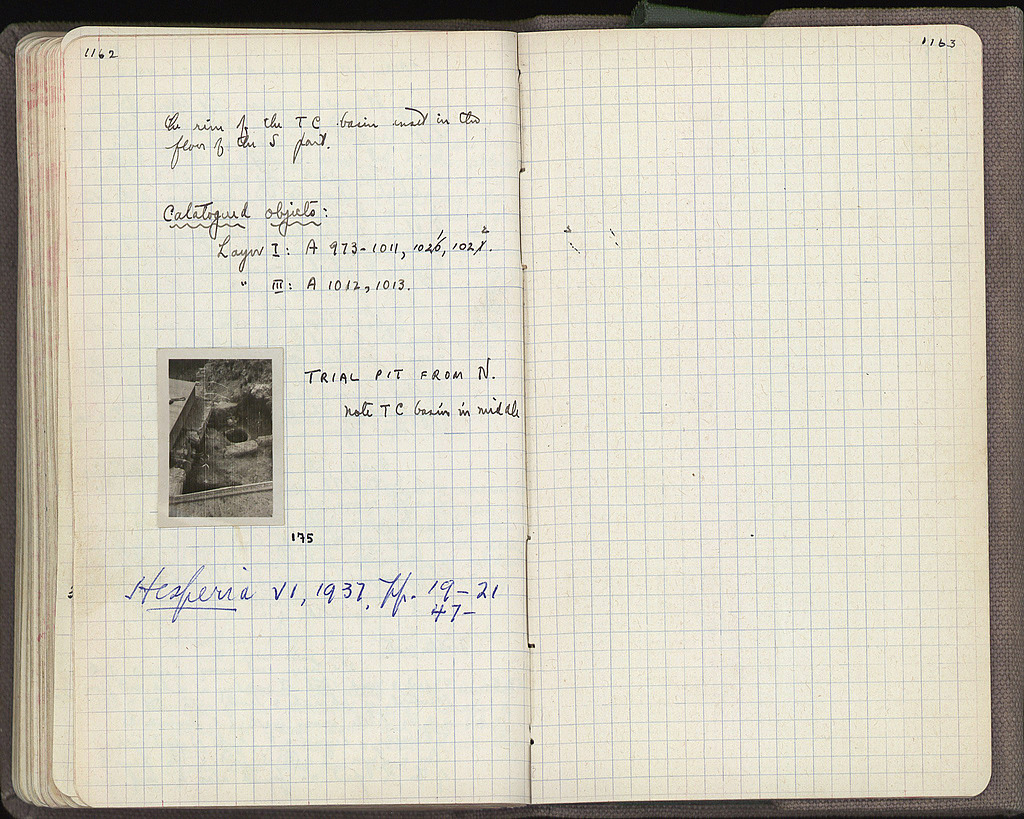 1162
the rim of the TC basin inset in the
floor of the S part.
Catalogued objects:
Layer I: A 973-1011, 1021, 1022.
" III: A 1012, 1013.
TRIAL PIT FROM N.
note TC basin in middle
175
Hesperia VI, 1937, pp. 19-21
47-
1163